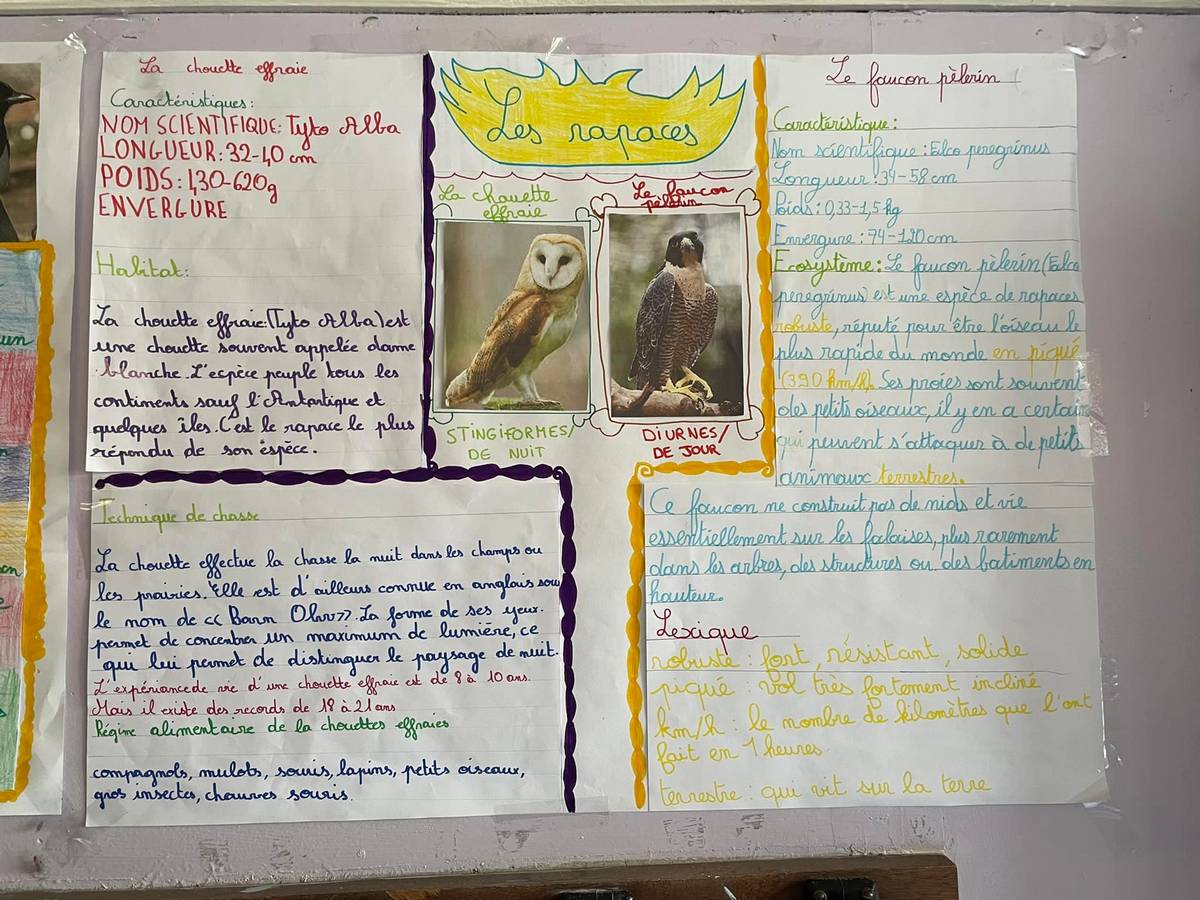 La chouette effraie
Caractéristiques:
NOM SCIENTIFIQUE: Tyto Alba
LONGUEUR: 32-40 cm
POIDS: 430-620g
ENVERGURE
Habitat:
La chouette effraie:(Tyto Alba) est
une chouette souvent appelée dame
blanche. L'espèce peuple tous les
continents sauf l'Antartique et
quelques îles. C'est le rapace le plus
répondu de son espèce.
Technique de chasse
La chouette effectue la chasse la nuit dans les champs ou
les prairies. Elle est d'ailleurs connue en anglais sous
le nom de << Barn Olw>>. La forme de ses yeux.
permet de concentrer un maximum de lumière, ce
qui lui permet de distinguer le paysage de nuit.
L'expériance de vie d'une chouette effraie est de 8 à 10 ans.
Mais il existe des records de 18 à 21 ans
Régime alimentaire de la chouettes effraies
compagnols, mulots, souris, lapins, petits oiseaux,
gros insectes, chauves souris.
Les rapaces
La chouette
effraie
Le faucon
pèlerin
STINGIFORMES/
DE NUIT
DIURNES/
DE JOUR
Le faucon pèlerin
Caractéristique:
Nom scientifique: Falco peregrinus
Longueur: 34-58 cm
Poids: 0,33-1,5 kg
Envergure: 74-120 cm
Ecosystème: Le faucon pèlerin (Falco
peregrinus) est une espèce de rapaces
robuste, réputé pour être l'oiseau le
plus rapide du monde en piqué
(390 km/h). Ses proies sont souvent
des petits oiseaux, il y en a certain
qui peuvent s'attaquer à de petits
animaux terrestres.
Ce faucon ne construit pas de nids et vie
essentiellement sur les falaises, plus rarement
dans les arbres, des structures ou des batiments en
hauteur.
Lexique
robuste: fort, résistant, solide
piqué: vol très fortement incliné
km/h: le nombre de kilomètres que l'ont
fait en 1 heures
terrestre: qui vit sur la terre
un
en